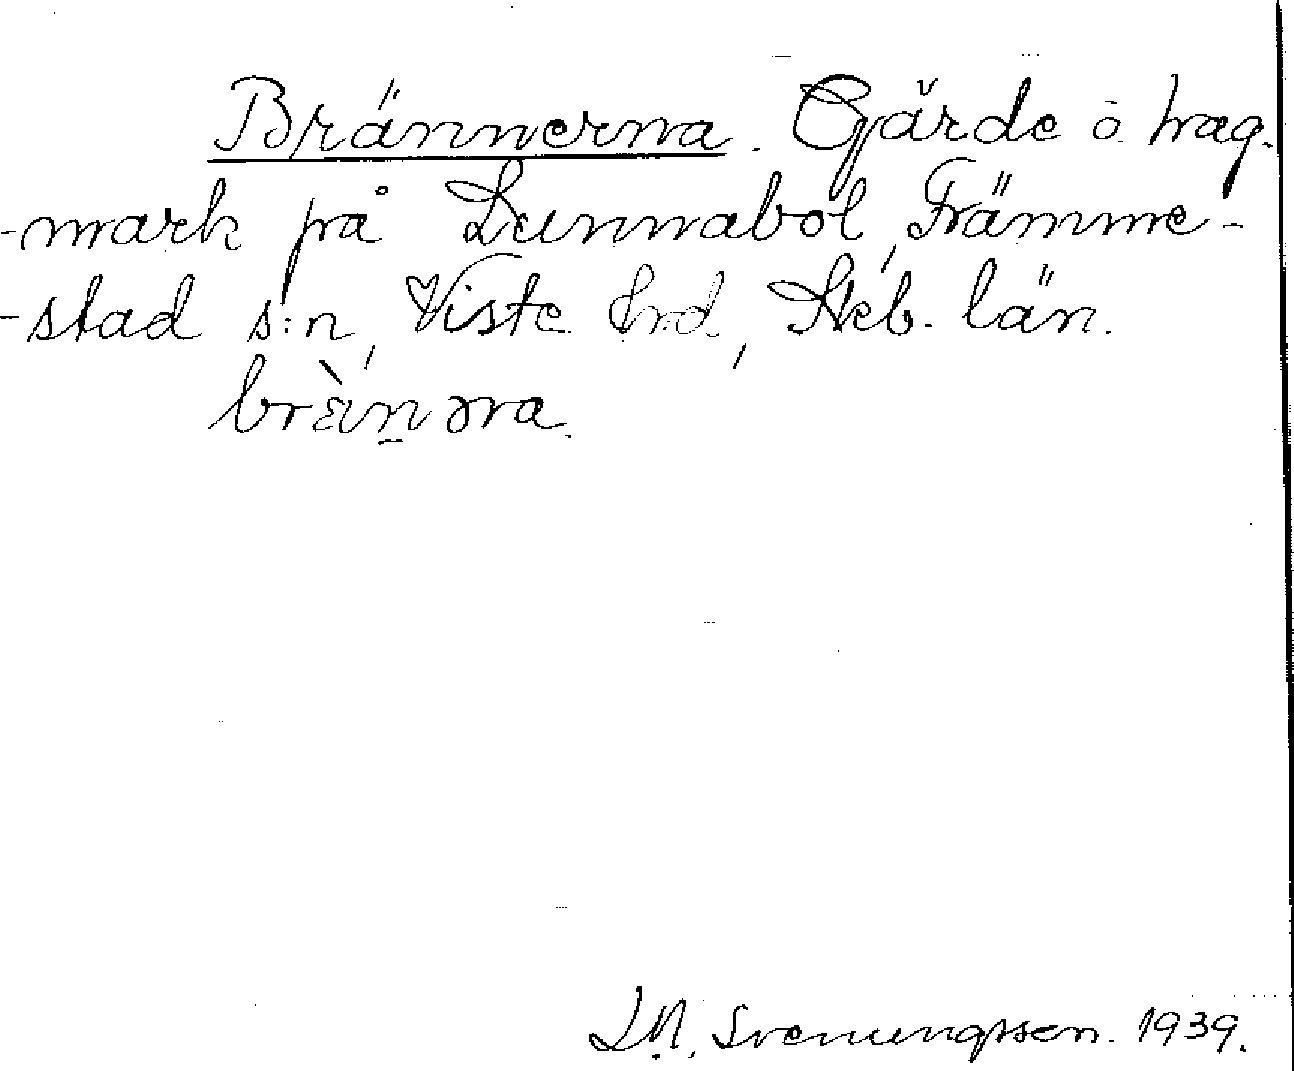 Brännerna. Gärde o hag-
-mark på Lunnabol, Främme-
-stad s:n, Viste hrd, Skb. län.
brὲin̲əra.
L.M. Svenungsson. 1939.